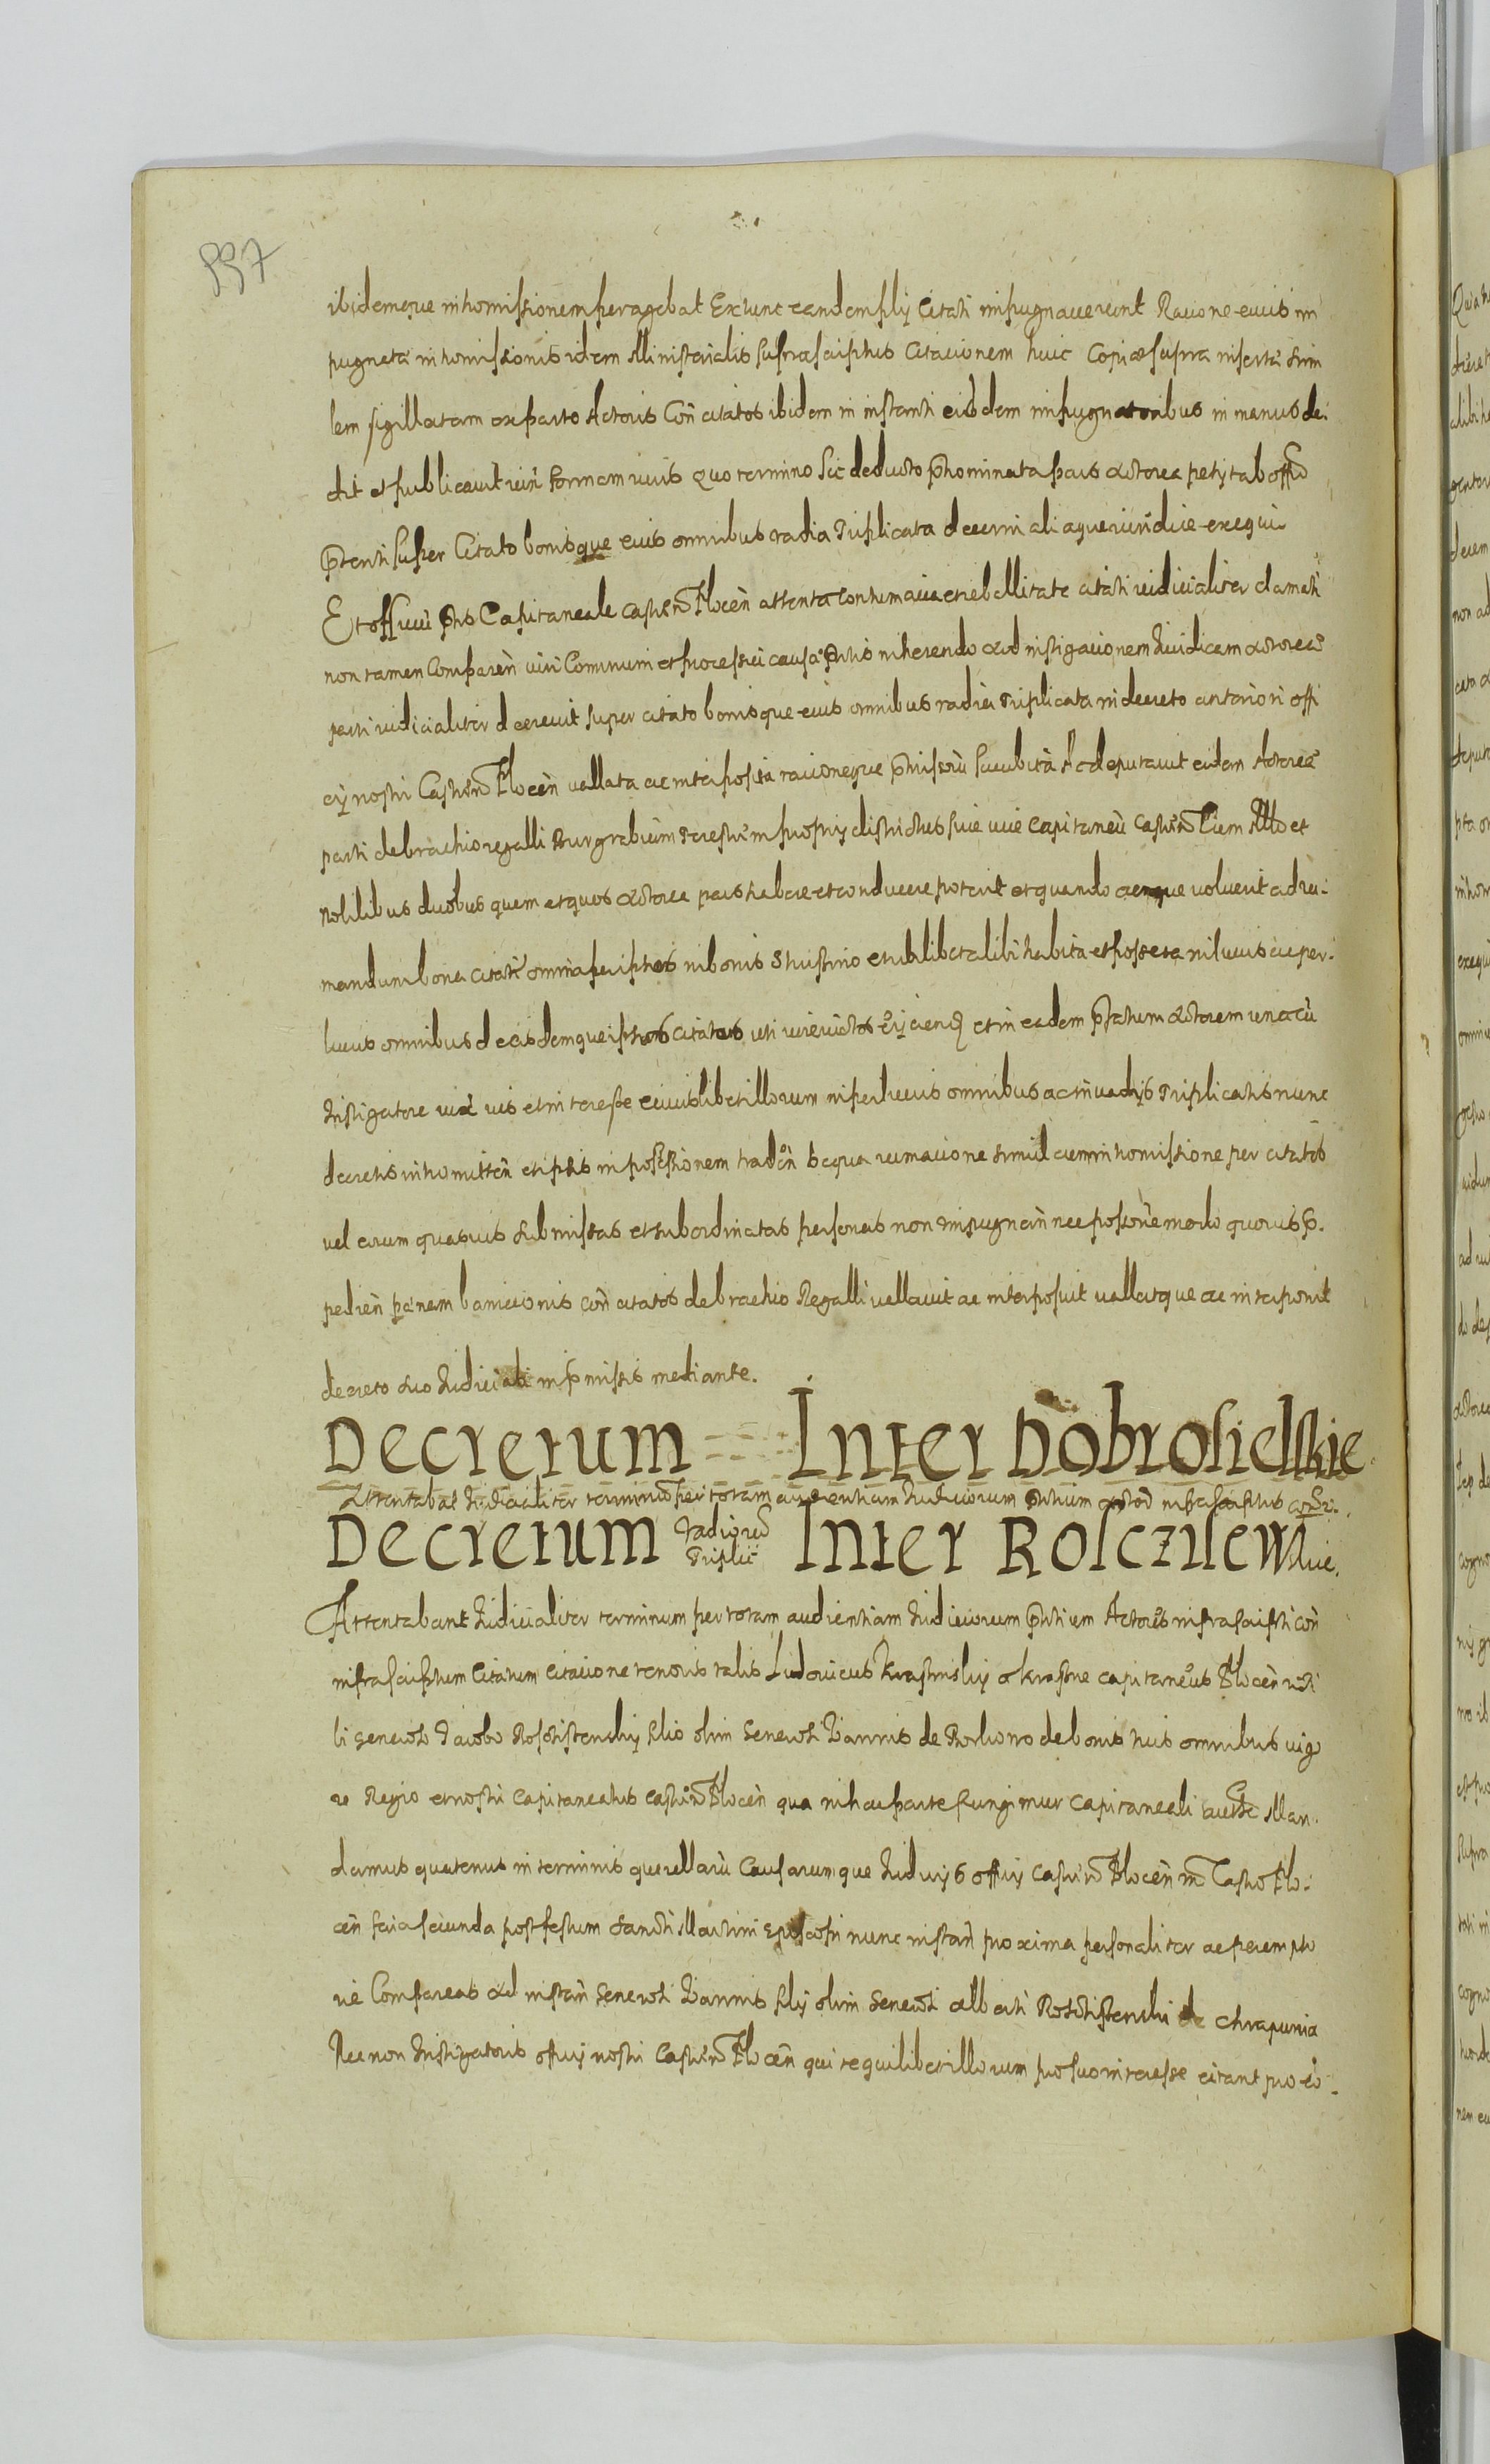 557
ibidemque intromissionem peragebat Extunc eandem filij Citati impugnauerunt Racione cuius im
pugnatae intromissionis idem Ministerialis suprascriptus Citacionem huic Copiae supra insertae simi
lem sigillatam ex parte Actoris Con citatos ibidem in instanti eisdem impugnatoribus in manus de
dit et publicauit iuxta formam iuris Quo termino sic deducto pnominata pars actorea petijt ab offo
pnti super Citato bonisque eius omnibus vadia Triplicata decerni aliaque iuridice exequi
Et offium pns Capitaneale Castrñ Plocen attenta contumacia et rebellitate citati iudicialiter clamati
non tamen Comparen iuri Communi et processui causae pntis inherendo ad instigacionem Iuridicam actoreae
parti iudicialiter decreuit super citato bonisque eius omnibus vadia Triplicata in decreto anteriori offi
cij nostri Castrñ Plocen vallata ac interposita racioneque pmissorũ succubita Ac deputauit eidem Actoreae
parti de brachio regalli Burgrabium Terestrem proprij districtus siue vice Capitaneũ Castrñ cum Mlo et
Nobilibus duobus quem et quos actorea pars habere et conducere poterit et quando cunque voluerit ad rei-
mandum bona citati omnia in bonis et ubilibet alibi habita et possessa in lucris ac per-
lucris omnibus de eisdemque ipsos citatos uti iure victos et in eadem pfatum actorem una cũ
Instigatore vice vis et interesse cuiuslibet illorum in perlucris omnibus ac in vadijs Triplicatis nunc
decretis intromitten et ipsis in possessionem traden Contra qua reimacione simul cum intromissione per citatos
vel eorum quasuis submissas et subordinatas personas non impugnan nec possone modo quouis p-
pedien paenam bannicionis con citatos de brachio Regalli vallauit ac interposuit vallatque ac interponit
decreto suo Iudiciali in pmissis mediante.
Decretum Inter Dobrosielskie
Attentabat Iudicialiter terminum per totam audientiam Iudiciorum pntium actor infrascriptus
Decretum Vadiorũ Triplic Inter Rosczisewskie.
Attentabant Iudicialiter terminum per totam audientiam Iudiciorum pntium Actores infrascripti con
infrascriptum Citatum citacione tenoris talis Ludouicus Krasinskij o krasne capitaneus Plocen Nobi
li generoso Jacobo Rosczissewskij filio olim Generosi Ioannis de Borkowo de bonis tuis omnibus vigo
re Regio et nostri Capitaneatus castrñ Plocen qua in hac parte fungimur Capitaneali autte Man-
damus quatenus in terminis querellarũ Causarumque Iudicij et officij castrñ Plocen in Castro Plo-
cen feria secunda post festum Sancti Martini Episcopi nunc instan proxima personaliter ac perempto
rie Compareas ad instan Generosi Ioannis filij olim Generosi alberti Rosczissewski de chrapunia
Nec non Instigatoris officij nostri Castrñ Plocen qui te quilibet illorum pro suo interesse citant pro eo-